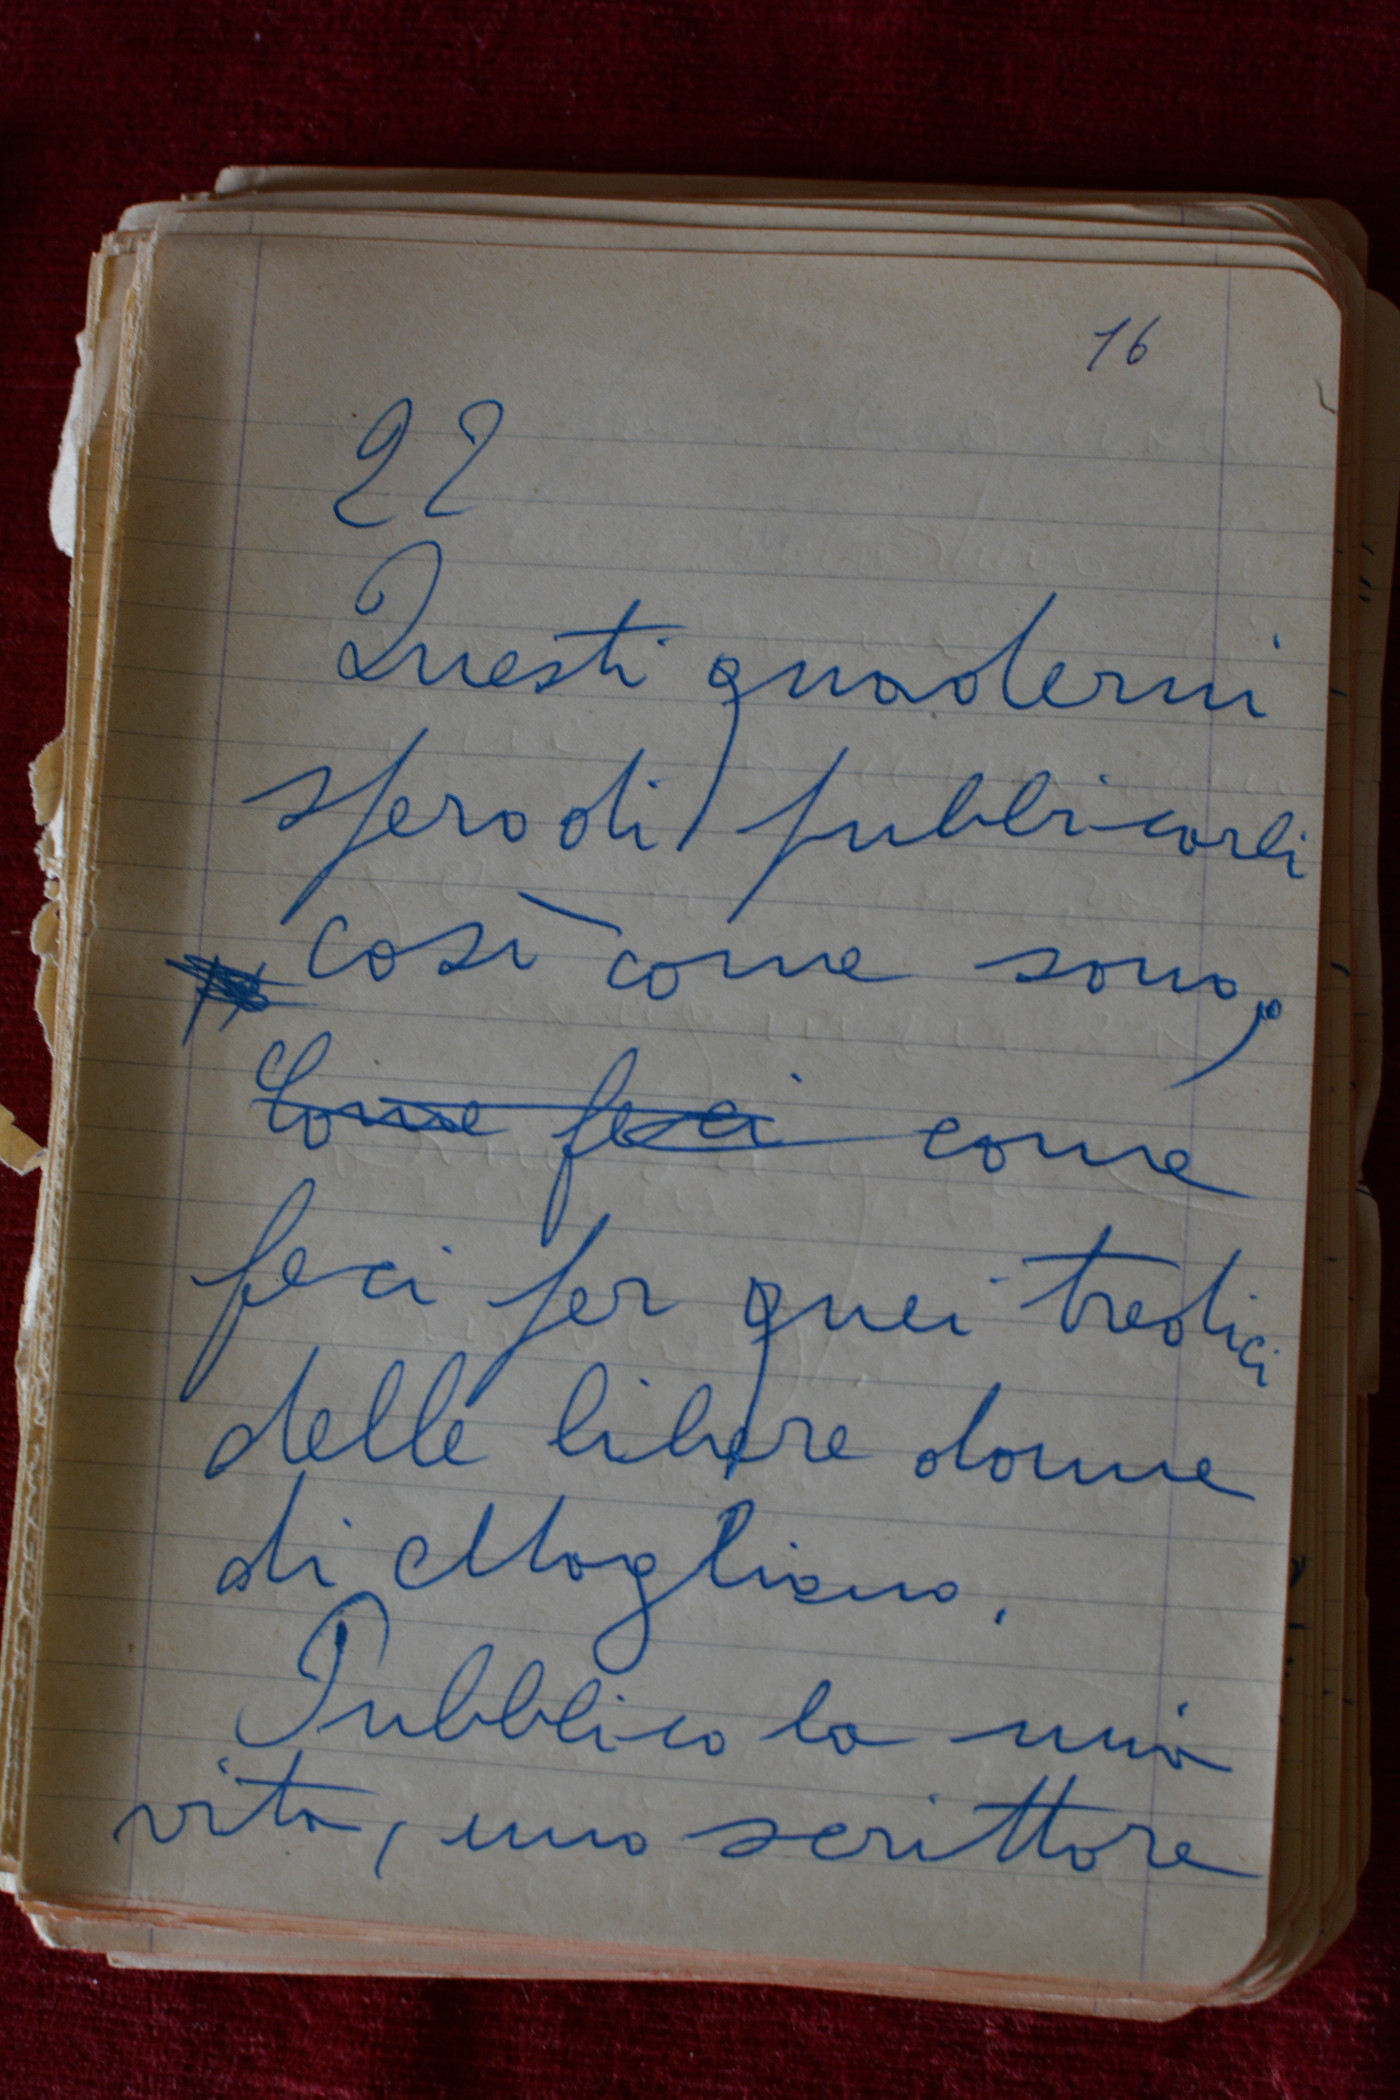 16
22
Questi quaderni
spero di pubblicarli
così come sono,
Come feci come
feci per quei tredici
delle libere donne
di Magliano.
Pubblico la mia
vita, uno scrittore